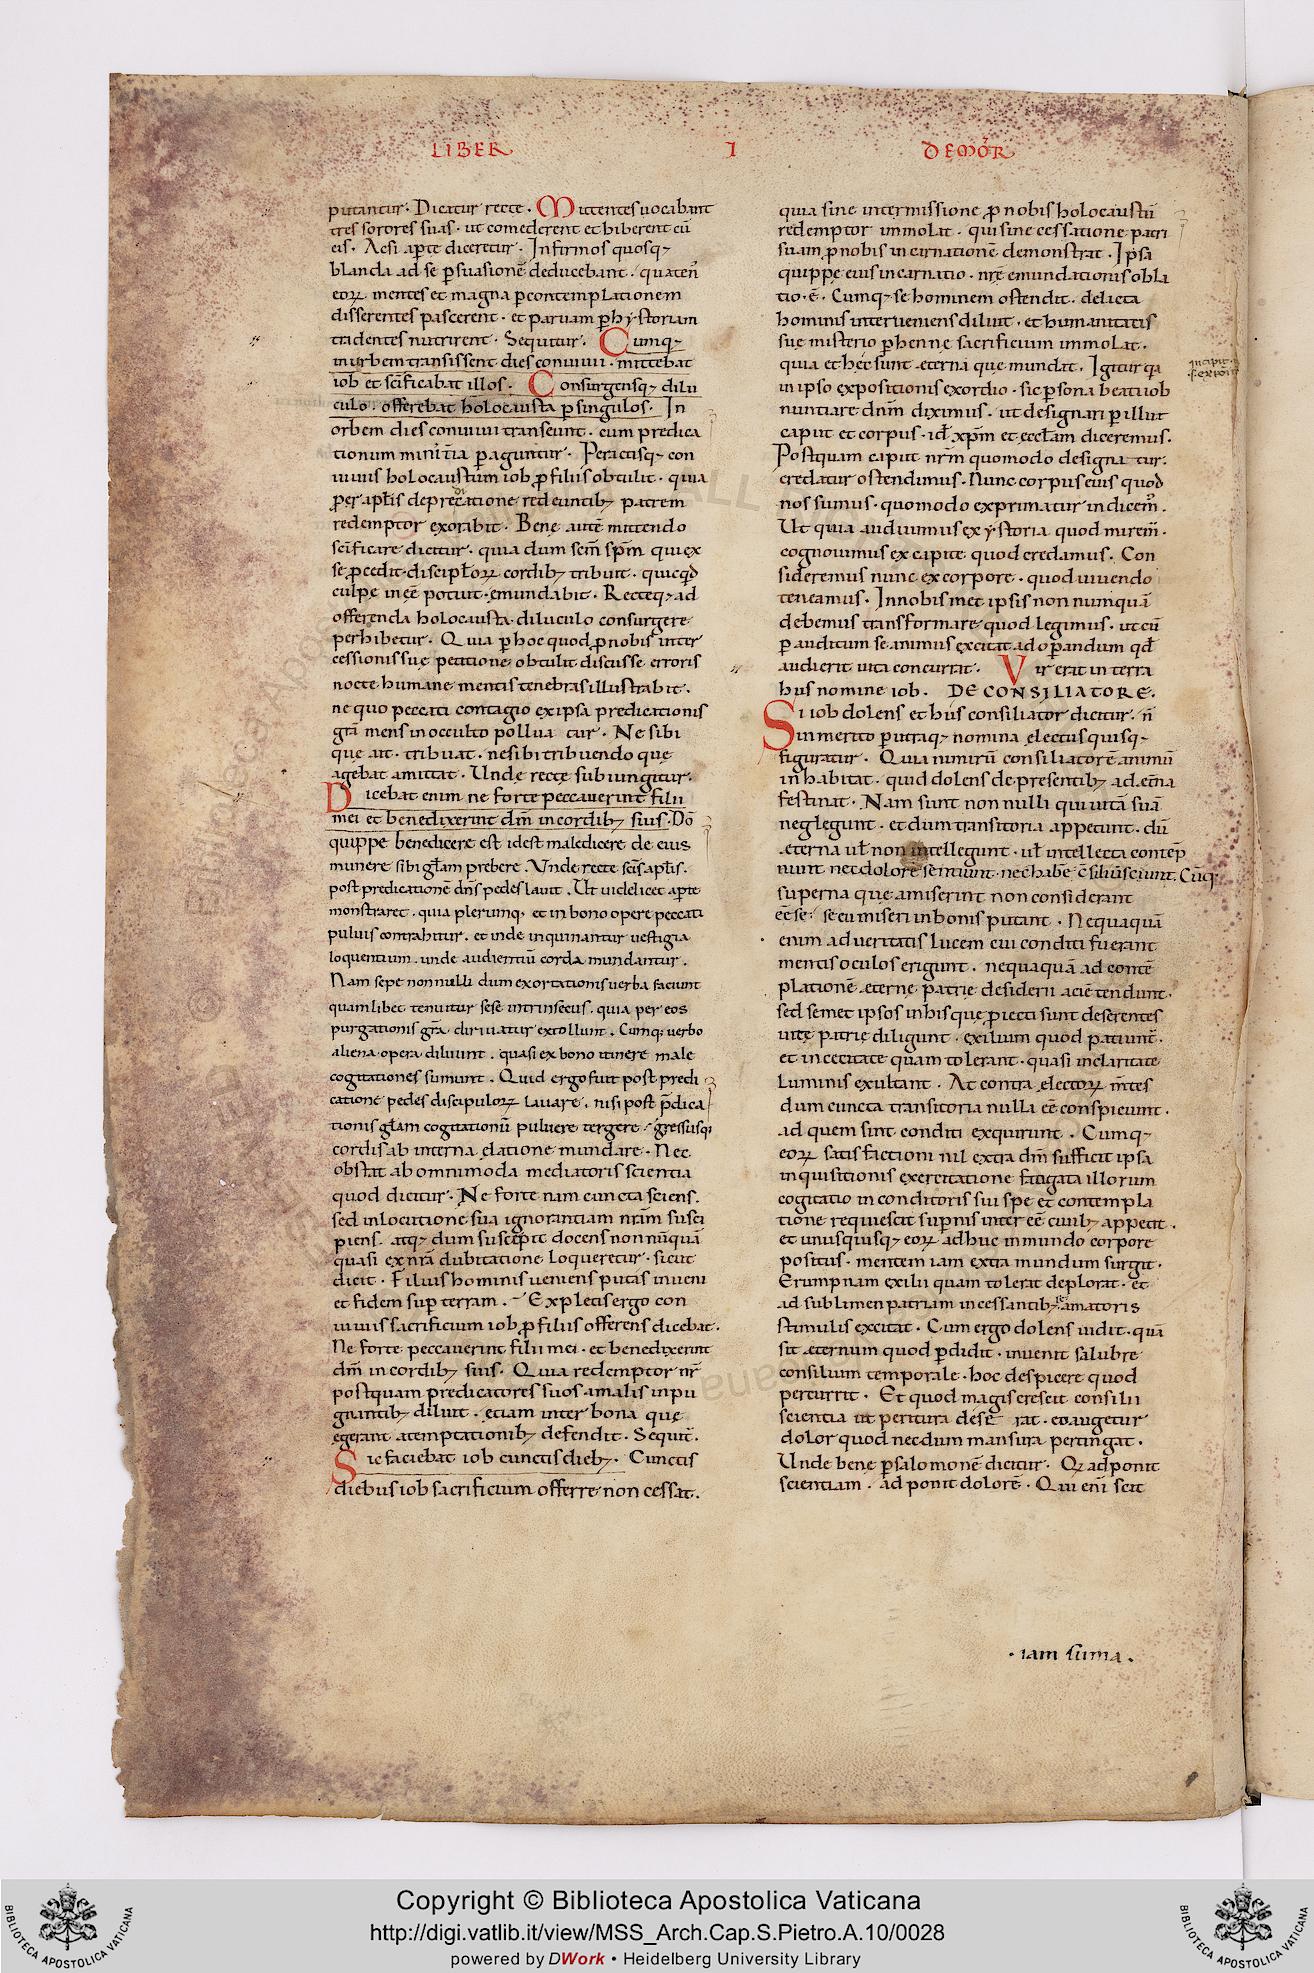 LIBER I DE MOR̄
putantur. Dicatur recte. Mittentes uocabant
tres sorores suas. ut comederent et biberent cū
eis. Ac si aꝑte diceretur. Infirmos quosq;
blanda ad se ꝑsuasionē deducebant. quaten̄
eoꝝ mentes et magna ꝑ contemplationem
disserentes pascerent. et paruam ꝑ hystoriam
tradentes nutrirent. Sequitur. Cumq;
in urbem transissent dies conuiuii. mittebat
iob et sc̄ificabat illos. Consurgensq; dilu
culo. offerebat holocausta ꝑ singulos. In
orbem dies conuiuii transeunt. cum predica
tionum minist̄ia ꝑaguntur. Peractisq; con
uiuiis holocaustum iob ꝓ filiis obtulit. quia
ꝓ aptīs de precatione redeuntib; patrem
redemptor exorabit. Bene autē mittendo
sc̄ificare dicitur. quia dum sc̄m sp̄m qui ex
se ꝓcedit discipl̄oꝝ cordib; tribuit. quicq̄d
culpę inēē potuit. emundabit. Recteq; ad
offerenda holocausta diluculo consurgere
perhibetur. Quia ꝑ hoc quod ꝓ nobis inter
cessionis suę petitione obtulit discussę erroris
nocte humanę mentis tenebras illustrabit.
ne quo peccati contagio ex ipsa predicationis
gr̄a mens in occulto pollua tur. Ne sibi
que ait. tribuat. ne sibi tribuendo quę
agebat amittat. Unde recte subiungitur.
Dicebat enim ne forte peccauerint filii
mei et benedixerint dm̄ in cordib; suis. Dō
quippe benedicere est idest maledicere de eius
munere sibi glā̄m prebere. Unde recte sc̄is apt̄is.
post predicationē dn̄s pedes lauit. Ut uidelicet aꝑte
monstraret. quia plerunq; et in bono opere peccati
puluis contrahitur. et inde inquinantur uestigia
loquentium. unde audientiū corda mundantur.
Nam sepe non nulli dum exortationis uerba faciunt
quamlibet tenuitur sese intrinsecus. quia per eos
purgationis gr̄a diriuatur extollunt. Cumq; uerbo
aliena opera diluunt. quasi ex bono itinere male
cogitationes sumunt. Quid ergo fuit post predi
catione pedes discipuloꝝ lauare. nisi post p̄dica
tionis gl̄am cogitationū puluere tergere. gressusq;
cordis ab interna elatione mundare. Nec
obstat ab omnimoda mediatoris scientia
quod dicitur. Ne forte nam cuncta sciens.
sed in locutione sua ignorantiam nr̄am susci
piens. atq; dum suscepit docens non nūquā
quasi ex nr̄a dubitatione loqueretur. sicut
dicit. Filius hominis ueniens putas inueni
et fidem suꝑ terram. Expletis ergo con
uiuiis sacrificium iob ꝓ filiis offerens dicebat.
Ne forte peccauerint filii mei. et benedixerint
dm̄ in cordib; suis. Quia redemptor nr̄
postquam predicatores suos a malis inpu
gnantib; diluit. etiam inter bona quę
egerant a temptationib; defendit. Sequit̄.
Sic faciebat iob cunctis dieb;. Cunctis
diebus iob sacrificium offerre non cessat.
quia sine intermissione ꝓ nobis holocaustū
redemptor immolat. qui sine cessatione patri
suam ꝓ nobis incarnationē demonstrat. Ipsa
quippe eius incarnatio. nrē emundationis obla
tio. ē. Cumq; se hominem ostendit. delicta
hominis interueniens diluit. et humanitatis
suę misterio ꝑhenne sacrificium immolat.
quia et hęc sunt eterna que mundat. Igitur qa
in ipso expositionis exordio. sic ꝑsona beati iob
nuntiare dnm̄ diximus. ut designari ꝑ illut
caput et corpus. id̄ xp̄m et eccl̄am diceremus.
Postquam caput nrm̄ quomodo designa tur.
credatur ostendimus. Nunc corpus eius quod
nos sumus. quomodo exprimatur indicem̄.
Ut quia audiuimus ex ystoria quod mirem̄.
cognouimus ex capite quod credamus. Con
sideremus nunc ex corpore. quod uiuendo
teneamus. In nobis met ipsis non numquā
debemus transformare quod legimus. ut cū
ꝑ auditum se animus excitat ad oꝑandum qd̄
audierit uita concurrat. Vir erat in terra
hus nomine iob. DE CONSILIATORE.
Si iob dolens et hus consiliator dicitur. n̄
inmerito ꝑ utraq; nomina electus quisq;
figuratur. Quia nimirū consiliatorē animū
inhabitat. quid dolens de presentib; ad et̄na
festinat. Nam sunt non nulli qui uitā suā
neglegunt. et dum transitoria appetunt. dū
eterna ul̄ non intellegunt. ul̄ intellecta contēp
nunt nec dolorē sentiunt. nec habe c̄siliū sciunt. Cūq;
superna quę amiserint non considerant
ēēse. se eu miseri in bonis putant. Nequaquā
enim ad ueritatis lucem cui conditi fuerant
mentis oculos erigunt. nequaquā ad contē
plationē eternę patrię desiderii aciē tendunt.
sed semet ipsos in his que ꝓiecti sunt deserentes
uitę patrię diligunt. exilium quod patiunt̄.
et in cecitate quam tolerant. quasi in claritate
luminis exultant. At contra electoꝝ m̄tes
dum cuncta transitoria nulla ēē conspiciunt.
ad quem sint conditi exquirunt. Cumq;
eoꝝ satisfactioni nil extra dm̄ sufficit ipsa
inquisitionis exercitatione fatigata illorum
cogitatio in conditoris sui spe et contempla
tione requiescit suꝑnis inter ēē ciuib; appetit.
et unusquisq; eoꝝ adhuc in mundo corpore
positus. mentem iam extra mundum surgit.
Erumpnam exilii quam tolerat deplorat. et
ad sublimen patriam incessantib; amatoris
stimulis excitat. Cum ergo dolens uidit. quā
sit eternum quod ꝑdidit. inuenit salubre
consilium temporale. hoc despicere quod
percurrit. Et quod magis crescit consilii
scientia ut peritura desē rat. eo augetur
dolor quod necdum mansura pertingat.
Unde bene ꝑ salomonē dicitur. Qꝫ adponit
scientiam. adponit dolorē. Qui eni scit
incipit
. iam suma .
Copyright © Biblioteca Apostolica Vaticana
http://digi.vatlib.it/view/MSS_Arch.Cap.S.Pietro.A.10/0028
powered by DWork • Heidelberg University Library
BIBLIOTECA APOSTOLICA VATICANA
BIBLIOTECA APOSTOLICA VATICANA